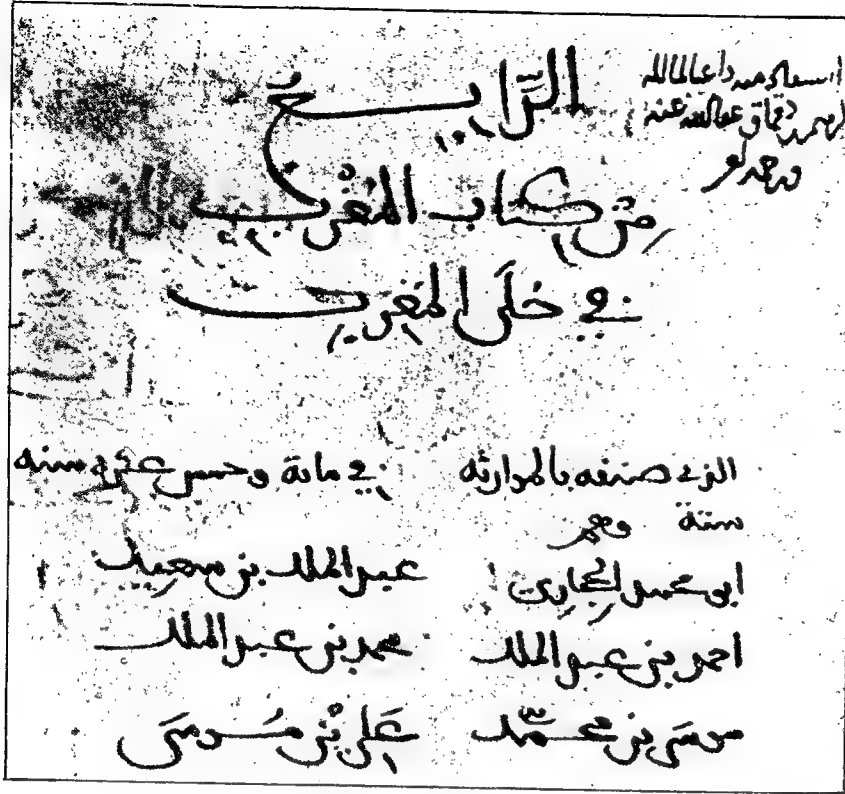 الرّابع
استفاد منه داعيا لمالكه
ابرهيم بن دقماق عفا الله عنه
من كتاب المُغْرب
في حُلَى المَغرب
الذي صنفه بالموارثة في مائة وخمس عشرة سنة
ستة وهم
ابو محمد الحجاري عبد الملك بن سعيد
احمد بن عبد الملك محمد بن عبد الملك
موسَى بن محمّد عَلي بْن مُوسَى